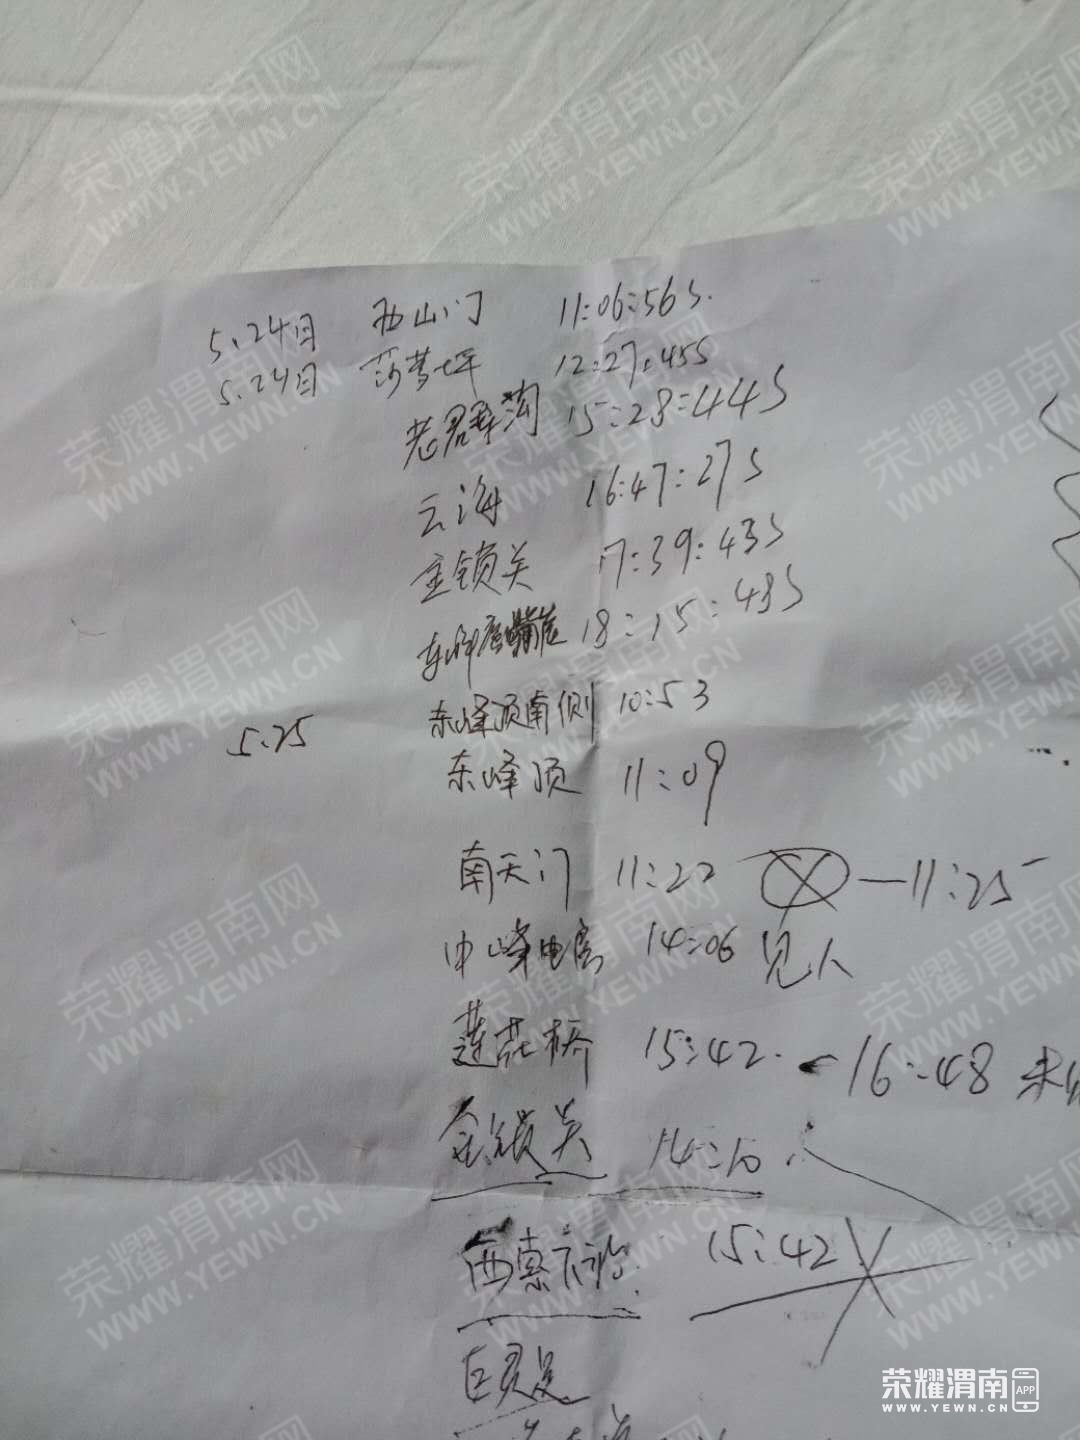 5.24日 西山门 11:06:56S.
5.24日 莎萝坪 12:27:45S
老君犁沟 15:28:44S
云海 16:47:27S
金锁关 17:39:43S
18:15:43S
5.25 东峰顶南侧 10:53
东峰顶 11:09
南天门 11:22 —11:25
中峰电房 14:06 见人
莲花桥 15:42. -16:48 未
金锁关 14:10
西索 15:42
巨灵足
荣耀渭南网
WWW.YEWN.CN
荣耀渭南 APP
WWW.YEWN.CN